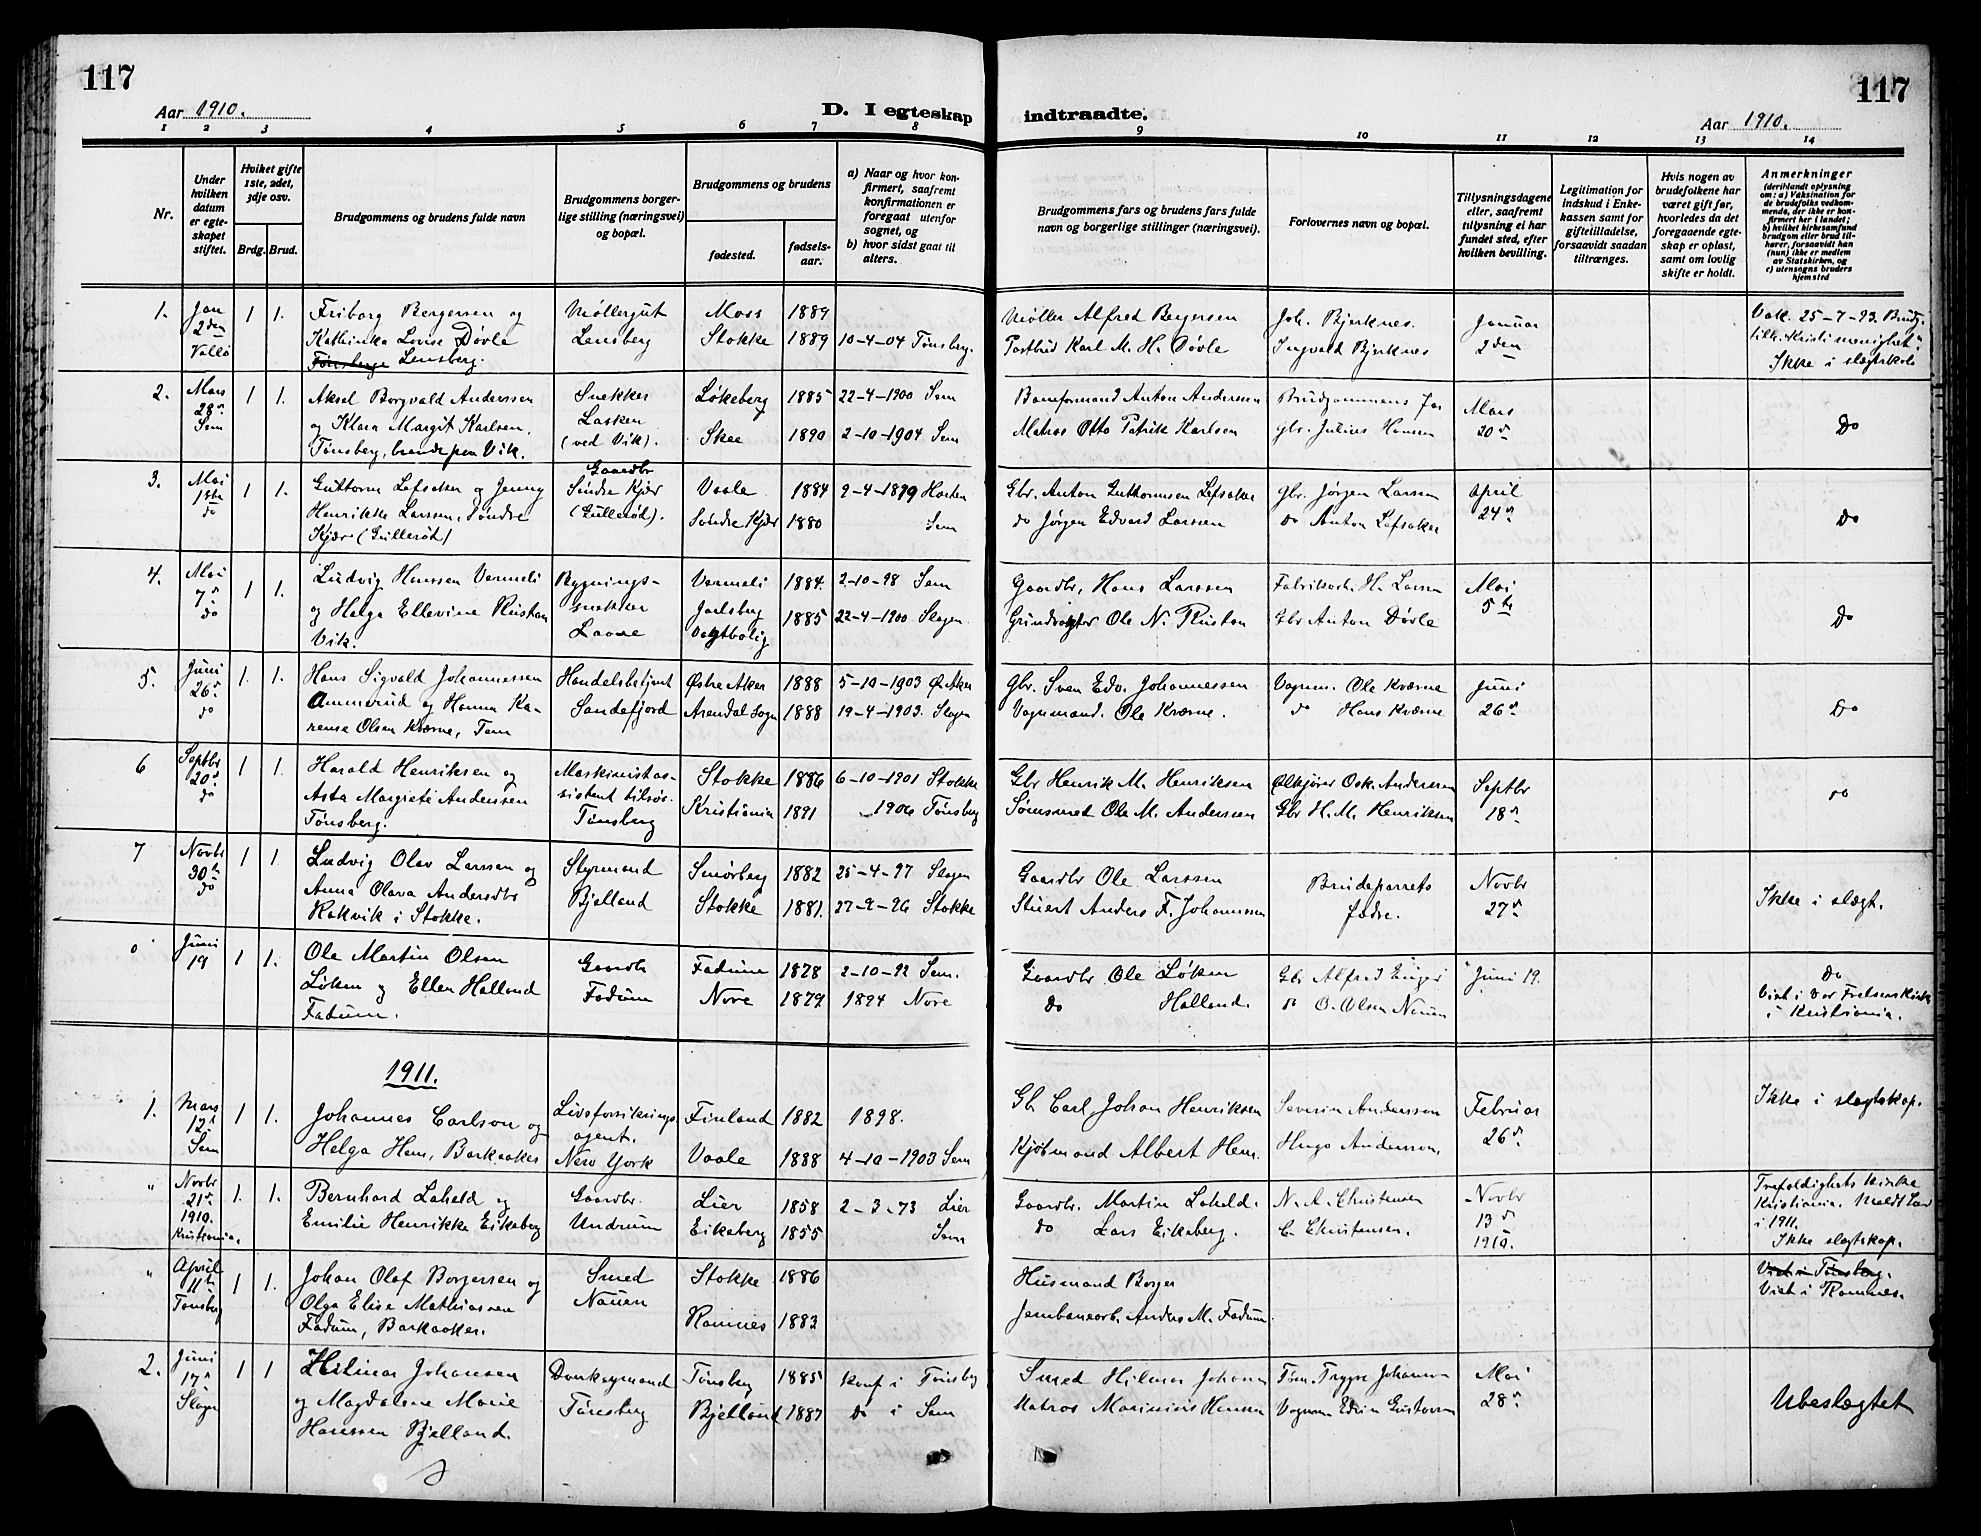 117
117
Aar 1910.
D. I egteskap
indtraadte.
Aar 1910.
1 2 3 4 5 6 7 8 9 10 11 12 13 14
Nr.
Under hvilken datum er egteskapet stiftet.
Hviket gifte 1ste, 2det, 3dje osv.
Brdg. Brud.
Brudgommens og brudens fulde navn
Brudgommens borgerlige stilling (næringsvei) og bopæl.
Brudgommens og brudens
fødested.
fødselsaar.
a) Naar og hvor konfirmert, saafremt konfirmationen er foregaat utenfor sognet, og
b) hvor sidst gaat til alters.
Brudgommens fars og brudens fars fulde navn og borgerlige stillinger (næringsvei).
Forlovernes navn og bopæl.
Tillysningsdagene eller, saafremt tillysning ei har fundet sted, efter hvilken bevilling.
Legitimation for indskud i Enkekassen samt for giftetilladelse, forsaavidt saadan tiltrænges.
Hvis nogen av brudefolkene har været gift før, hvorledes da det foregaaende egteskap er opløst, samt om lovlig skifte er holdt.
Anmerkninger
(deriblandt oplysning om: a) Vaksination for de brudefolks vedkommende, der ikke er konfirmert her i landet; b) hvilket kirkesamfund brudgom eller brud tilhører, forsaavidt han (hun) ikke er medlem av Statskirken, og c) utensogns bruders hjemsted
1. Jan 2den Vallø 1 1. Friborg Bergersen og Kathinka Lovise Døvle Tønsberg Lensberg. Møllergut Lensberg Moss 1889 Stokke 1889 10-4-04 Tønsberg. Møller Alfred Bergersen Postbud Karl M. H. Døvle Joh. Bjerknes. Ingvald Bjerknes Januar 2den Vak. 25-7-93 Brudg. Kristi menighet Ikke i slegtskab
2. Mars 28de Sem 1 1. Aksel Borgvald Anderssen og Klara Margit Karlsen, Tønsberg, Vik. Snekker Lasken (ved Vik). Løkeberg 1885 22-4-1900 Sem Skee 1890 2-10-1904 Sem Anton Anderssen Matros Otto Patrik Karlsen Brudgommens far gbr. Julius Hansen Mars 20de Do
3. Mai 1ste do 1 1. Guttorm Lefsaker og Jenny Henrikke Larssen, Søndre Kjær (Gullerød) Gaardbr Søndre Kjær (Gullerød). Vaale 1884 9-4-1899 Horten Søndre Kjær 1880 Sem Gbr. Anton Guttormsen Lefsaker do Jørgen Edvard Larssen Gbr. Jørgen Larssen do Anton Lefsaker April 24de Do
4. Mai 7de do 1 1. Ludvig Hanssen Vermeli og Helga Ellevine Rustan Vik. Bygningssnekker Laane Vermeli 1884. 2-10-98 Sem Jarlsberg Vagtbolig 1885 22-4-1900 Slagen Gaardbr. Hans Larssen Ole N. Rustan Fabrikarb. H. Larsen Gbr Anton Døvle Mai 5te Do
5. Juni 26de do 1. 1. Hans Sigvald Johannessen Ammerud og Hanna Karense Olsen Kværne, Tem Handelsbetjent Sandefjord Østre Aker 1888 5-10-1903 Ø. Aker Arendal sogn 1888 19-4-1903. Slagen Gbr. Sven Edv. Johannessen Vognmand. Ole Kværne. Vognm. Ole Kværne do Hans Kværne Juni 26de Do
6 Septbr 20de do 1 1. Harald Henriksen og Asta Margrete Anderssen Tønsberg. Maskinistassistent tilsøs. Tønsberg Stokke 1886 6-10-1901 Stokke Kristiania 1891 1906 Tønsberg Gbr Henrik M. Henriksen Sømsmed Ole M. Anderssen Ølkjører Osk. Anderssen Gbr H. M. Henriksen Septbr 18de Do
7 Novbr 30te do 1 1 Ludvig Olav Larssen og Anna Olava Andersdtr Rakvik i Stokke. Styrmand Bjelland Smørberg 1882 25-4-97 Slagen Stokke 1881. 27-9-96 Stokke Gaardbr Ole Larssen Stuert Anders F. Johannssen Brudeparrets fædre. Novbr 27de Ikke i slegt.
0 Juni 19 1 1. Ole Martin Olsen Løken og Ellen Halland Fadum. Gaardbr Fadum Fadum 1878 2-10-92 Sem. Nore 1879 1894 Nore Gaardbr Ole Løken do Halland. Gbr Alfred Enger do O. Olsen Nauen Juni 19. Do Viet i Vor Frelsers Kirke i Kristiania.
1911.
1. Mars 12te Sem 1 1. Johannes Carlson og Helga Hem, Barkaaker Livsforsikrings agent. New York Finland 1882 1898. Vaale 1888 4-10-1903 Sem Gbr Carl Johan Henriksen Kjøbmand Albert Hem. Severin Anderssen Hugo Anderssen, Februar 26de. Ikke i slegtskap.
" Novbr 21de 1910. Kristiania. 1. 1. Bernhard Laheld og Emilie Henrikke Eikeberg Gaardbr. Undrum Lier 1858 2-3-73 Lier Eikeberg 1855 Sem Gaardbr. Martin Laheld. do Lars Eikeberg. N. A. Christensen C. Christensen. Novbr 13de 1910. Trefoldighets kirke Kristiania. i 1911. Ikke slegtskap.
" April 11te Tønsberg 1 1. Johan Olaf Borgersen og Olga Elise Mathiassen Fadum, Barkaaker. Smed Nauen Stokke 1886 Ramnes 1883 Husmand Borger Jernbanearb. Anders M. Fadum. Viet i Tønsberg. Viet i Ramnes.
2. Juni 17de Slagen 1 1 Hilmar Johansen og Magdalene Marie Hanssen Bjelland. Tønsberg Tønsberg 1885 konf i Tønsberg Bjelland 1887 do i Sem Smed Hilmar Johansen Matros Marinius Hansen Tøm. Trygve Johansen Vognm Edvin Gustavsen Mai 28de Ubeslegtet